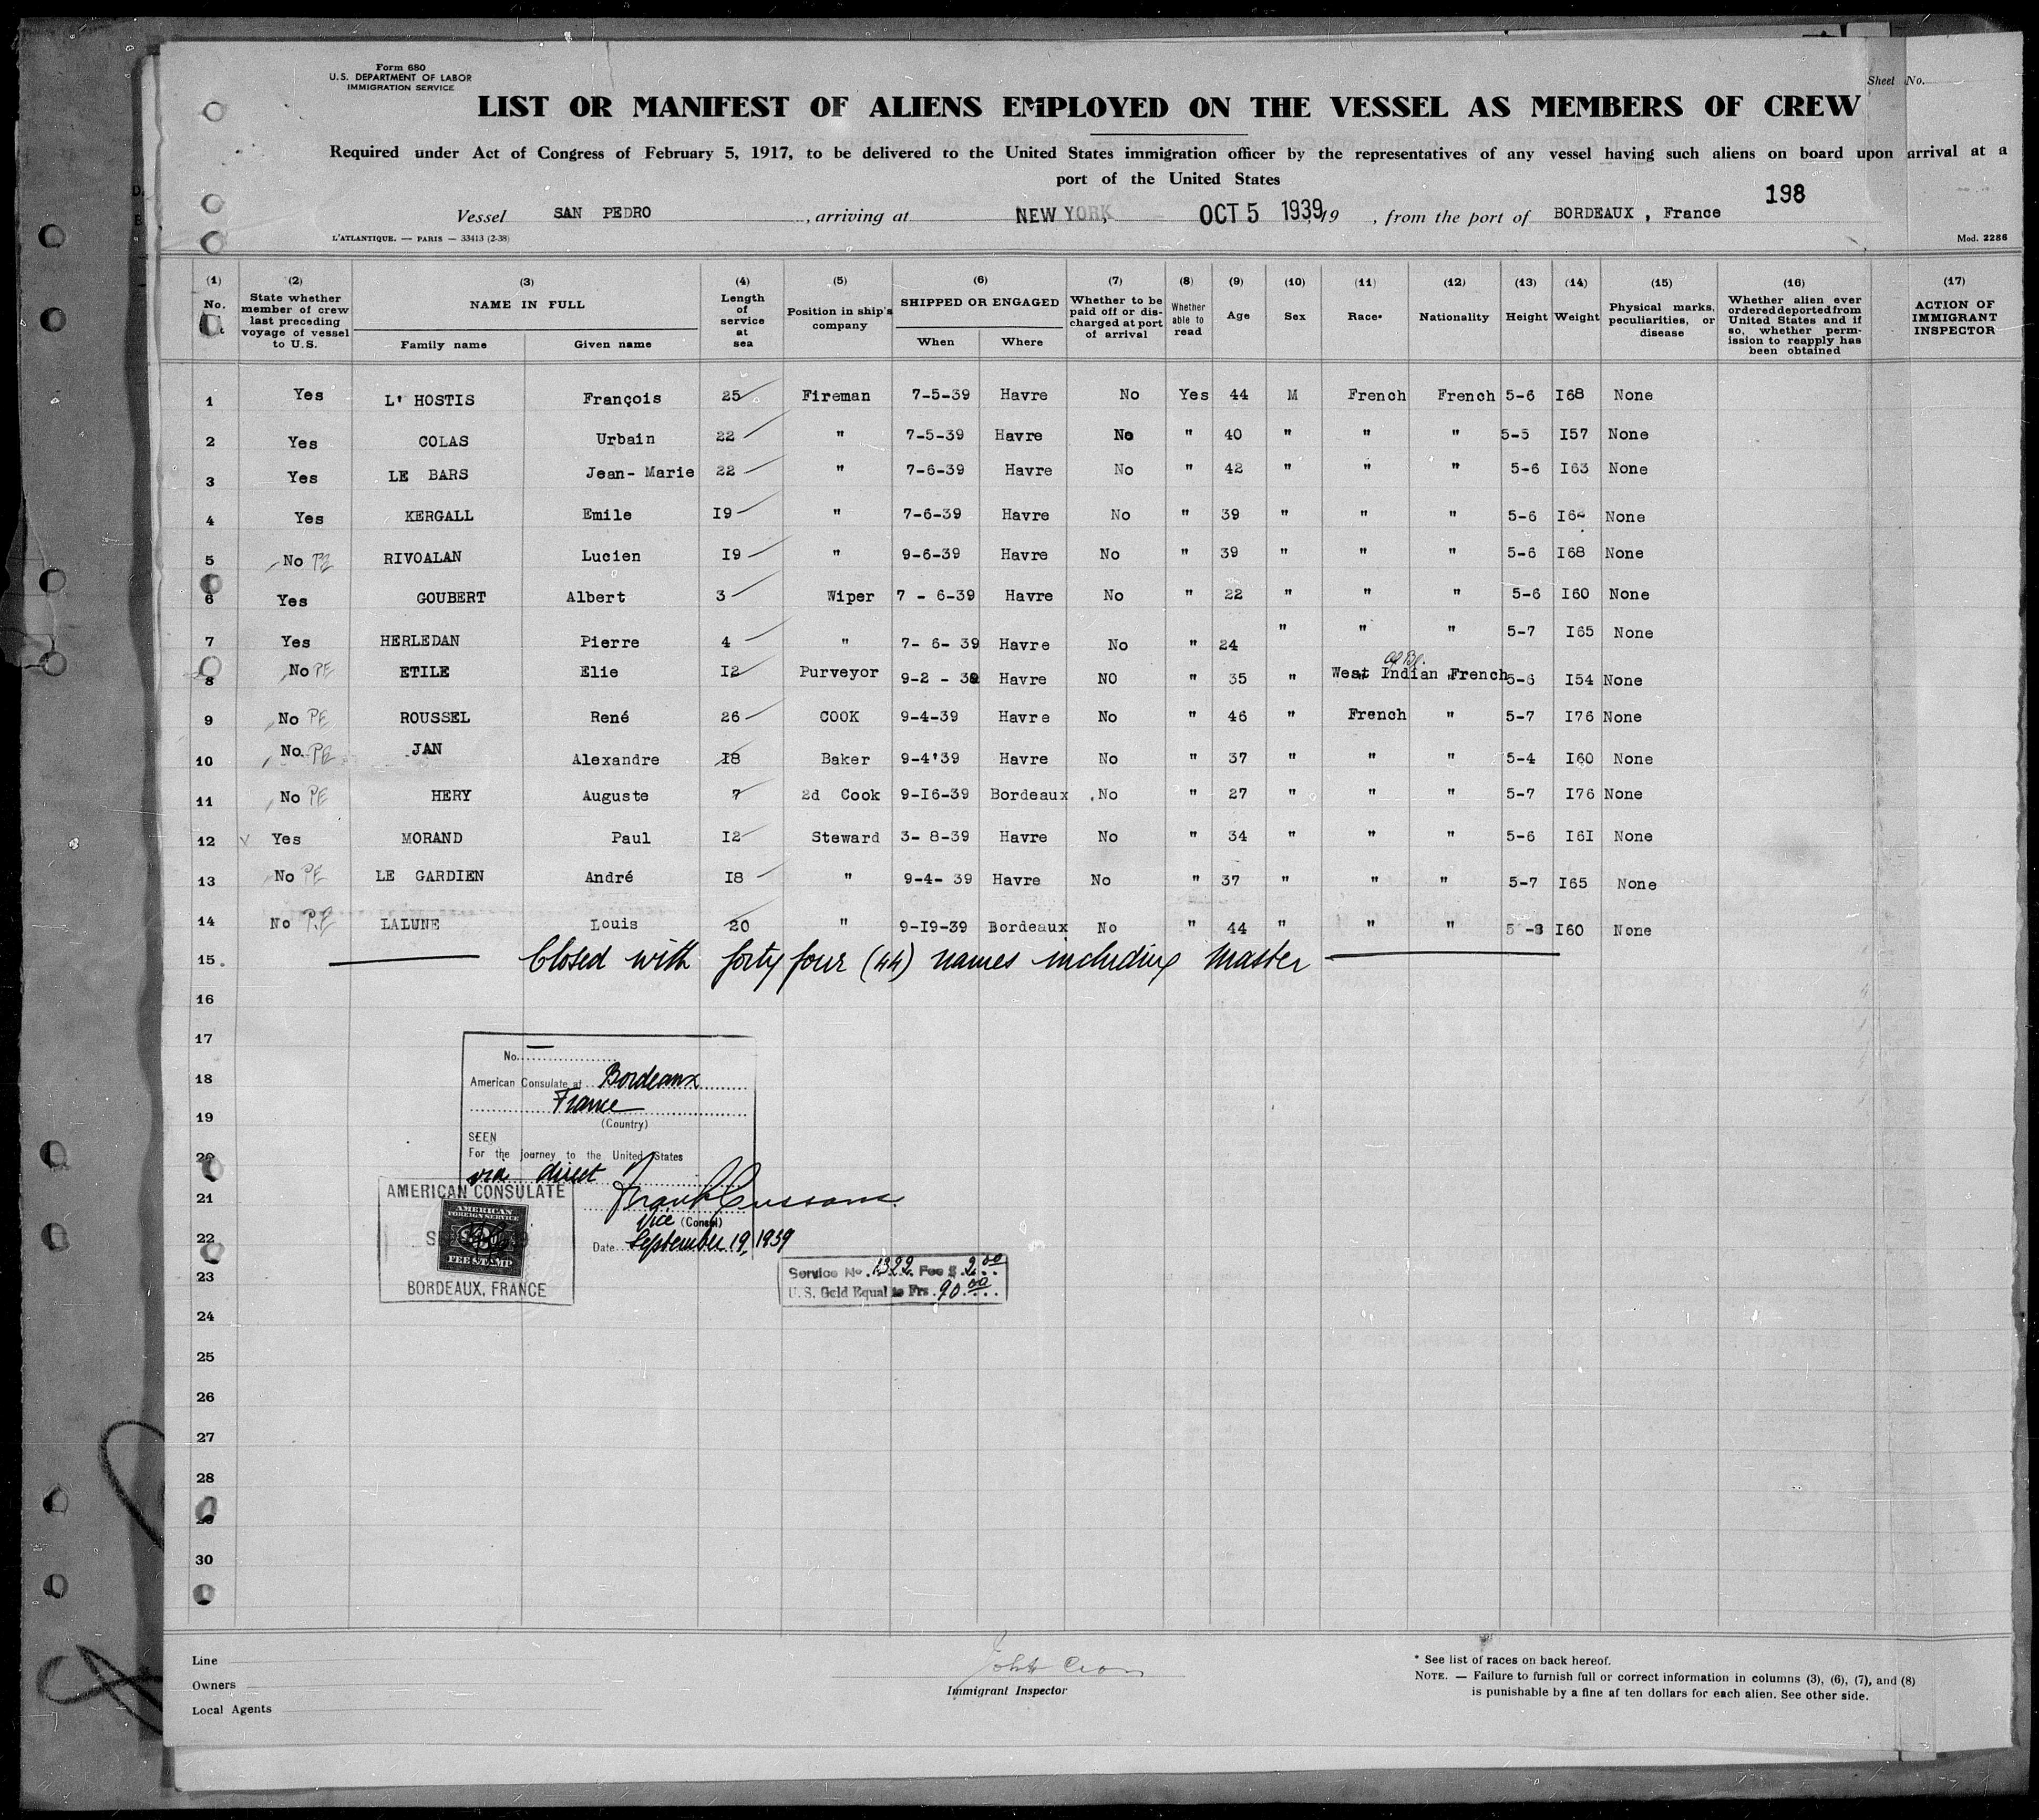 Form 680
U.S. DEPARTMENT OF LABOR
IMMIGRATION SERVICE
Sheet No.
LIST OR MANIFEST OF ALIENS EMPLOYED ON THE VESSEL AS MEMBERS OF CREW
Required under Act of Congress of February 5, 1917, to be delivered to the United States immigration officer by the representatives of any vessel having such aliens on board upon arrival at a
port of the United States
198
Vessel SAN PEDRO, arriving at NEW YORK, OCT 5 1939, 19 , from the port of BORDEAUX , France
L'ATLANTIQUE. — PARIS — 33413 (2-38)
Mod. 2286
(1) (2) (3) (4) (5) (6) (7) (8) (9) (10) (11) (12) (13) (14) (15) (16) (17)
No. State whether member of crew last preceding voyage of vessel to U.S. NAME IN FULL Family name Given name Length of service at sea Position in ship's company SHIPPED OR ENGAGED When Where Whether to be paid off or discharged at port of arrival Whether able to read Age Sex Race* Nationality Height Weight Physical marks, peculiarities, or disease Whether alien ever ordered deported from United States and if so, whether permission to reapply has been obtained ACTION OF IMMIGRANT INSPECTOR
1 Yes L' HOSTIS François 25 Fireman 7-5-39 Havre No Yes 44 M French French 5-6 I68 None
2 Yes COLAS Urbain 22 " 7-5-39 Havre No " 40 " " " 5-5 I57 None
3 Yes LE BARS Jean- Marie 22 " 7-6-39 Havre No " 42 " " " 5-6 I63 None
4 Yes KERGALL Emile I9 " 7-6-39 Havre No " 39 " " " 5-6 None
5 No RIVOALAN Lucien I9 " 9-6-39 Havre No " 39 " " " 5-6 I68 None
6 Yes GOUBERT Albert 3 Wiper 7 - 6-39 Havre No " 22 " " " 5-6 I60 None
7 Yes HERLEDAN Pierre 4 " 7- 6- 39 Havre No " 24 " " " 5-7 I65 None
8 No PE ETILE Elie I2 Purveyor 9-2 - 39 Havre NO " 35 " West Indian French 5-6 I54 None
9 No PE ROUSSEL René 26 COOK 9-4-39 Havre No " 46 " French " 5-7 I76 None
10 No PE JAN Alexandre I8 Baker 9-4'39 Havre No " 37 " " " 5-4 I60 None
11 No PE HERY Auguste 7 2d Cook 9-I6-39 Bordeaux No " 27 " " " 5-7 I76 None
12 Yes MORAND Paul I2 Steward 3- 8-39 Havre No " 34 " " " 5-6 I6I None
13 No PE LE GARDIEN André I8 " 9-4- 39 Havre No " 37 " " " 5-7 I65 None
14 No P.E LALUNE Louis 20 " 9-I9-39 Bordeaux No " 44 " " " 5-8 I60 None
15 Closed with forty four (44) names including Master
16
17
18
19
20
21
22
23
24
25
26
27
28
29
30
No.
American Consulate at Bordeaux
France
(Country)
SEEN
For the journey to the United States
via direct
Vice (Consul)
Date September 19, 1939
AMERICAN CONSULATE
AMERICAN
FOREIGN SERVICE
FEE STAMP
BORDEAUX, FRANCE
Service No. 1322 Fee $ 2.00
U.S. Gold Equal to Frs. 90.00
Line
Owners
Local Agents
Immigrant Inspector
* See list of races on back hereof.
NOTE. — Failure to furnish full or correct information in columns (3), (6), (7), and (8)
is punishable by a fine af ten dollars for each alien. See other side.